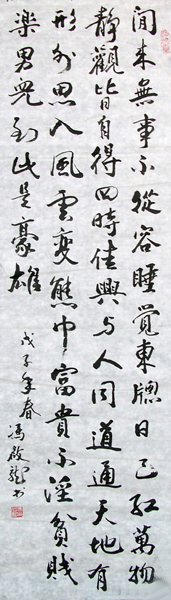 閒来無事不從容睡覺東牕日已红萬物
靜觀皆自得四時佳興与人同道通天地有
形外思入風雲變態中富貴不淫貧賤
樂男兒到此是豪雄
戊子年春
馮啟龍书